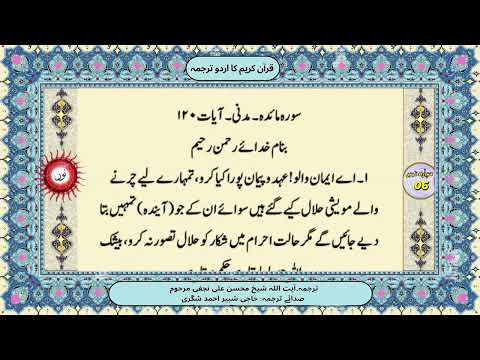 قرآن کریم کا اردو ترجمہ
سورہ مائدہ۔ مدنی۔ آیات ۱۲۰
بنام خدائے رحمن رحیم
۱۔ اے ایمان والو! عہد و پیمان پورا کیا کرو، تمہارے لیے چرنے
والے مویشی حلال کیے گئے ہیں سوائے ان کے جو (آیندہ) تمہیں بتا
دیے جائیں گے مگر حالت احرام میں شکار کو حلال تصور نہ کرو، بیشک
نور
06
ترجمہ۔آیت اللہ شیخ محسن علی نجفی مرحوم
صدائے ترجمہ: حاجی شبیر احمد شگری